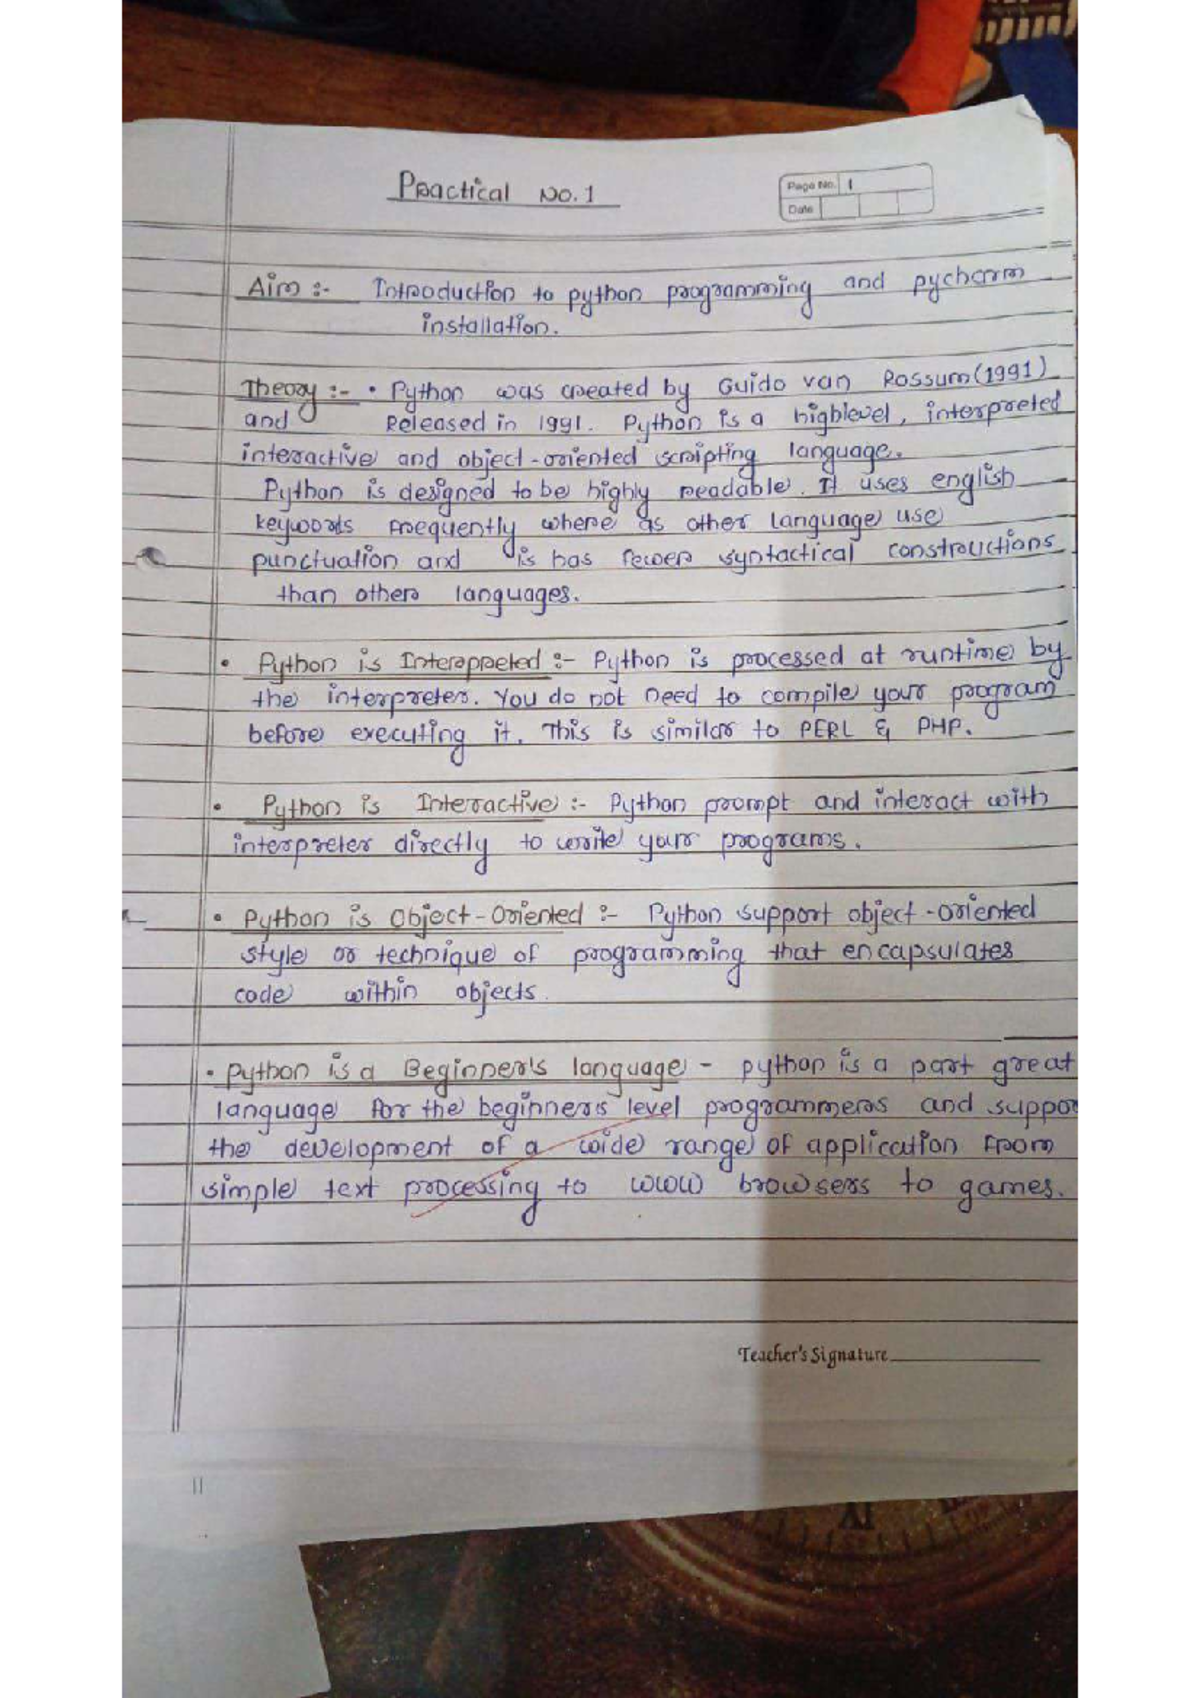 Practical No. 1
Page No. 1
Date
Aim :- Introduction to python programming and pycharm
installation.
Theory :- • Python was created by Guido van Rossum(1991)
and Released in 1991. Python is a highlevel, interpreted
interactive and object-oriented scripting language.
Python is designed to be highly readable. It uses english
keywords frequently where as other language use
punctuation and is has fewer syntactical constructions
than others languages.
• Python is Interappreted :- Python is processed at runtime by
the interpreter. You do not need to compile your program
before executing it. This is similar to PERL & PHP.
• Python is Interactive :- Python prompt and interact with
interpreter directly to write your programs.
• Python is Object-Oriented :- Python support object-oriented
style or technique of programming that encapsulates
code within objects.
• Python is a Beginner's language - python is a part great
language for the beginners level programmers and suppo
the development of a wide range of application from
simple text processing to WWW browsers to games.
Teacher's Signature
XI